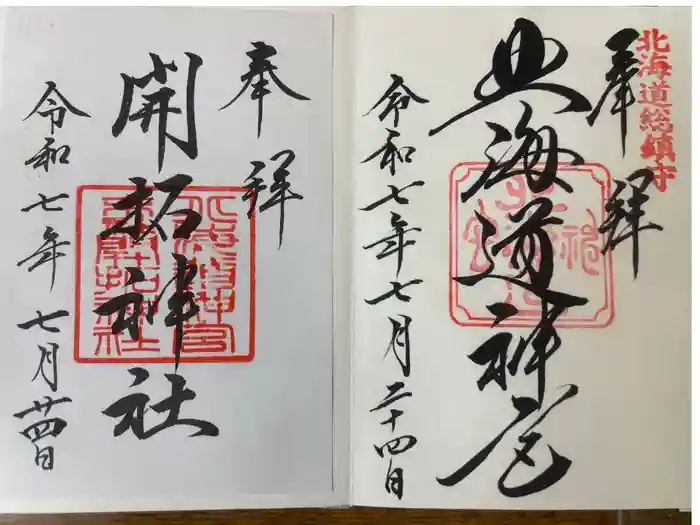 北海道総鎮守
奉拝
北海道神宮
令和七年七月二十四日
奉拝
開拓神社
令和七年七月廿四日